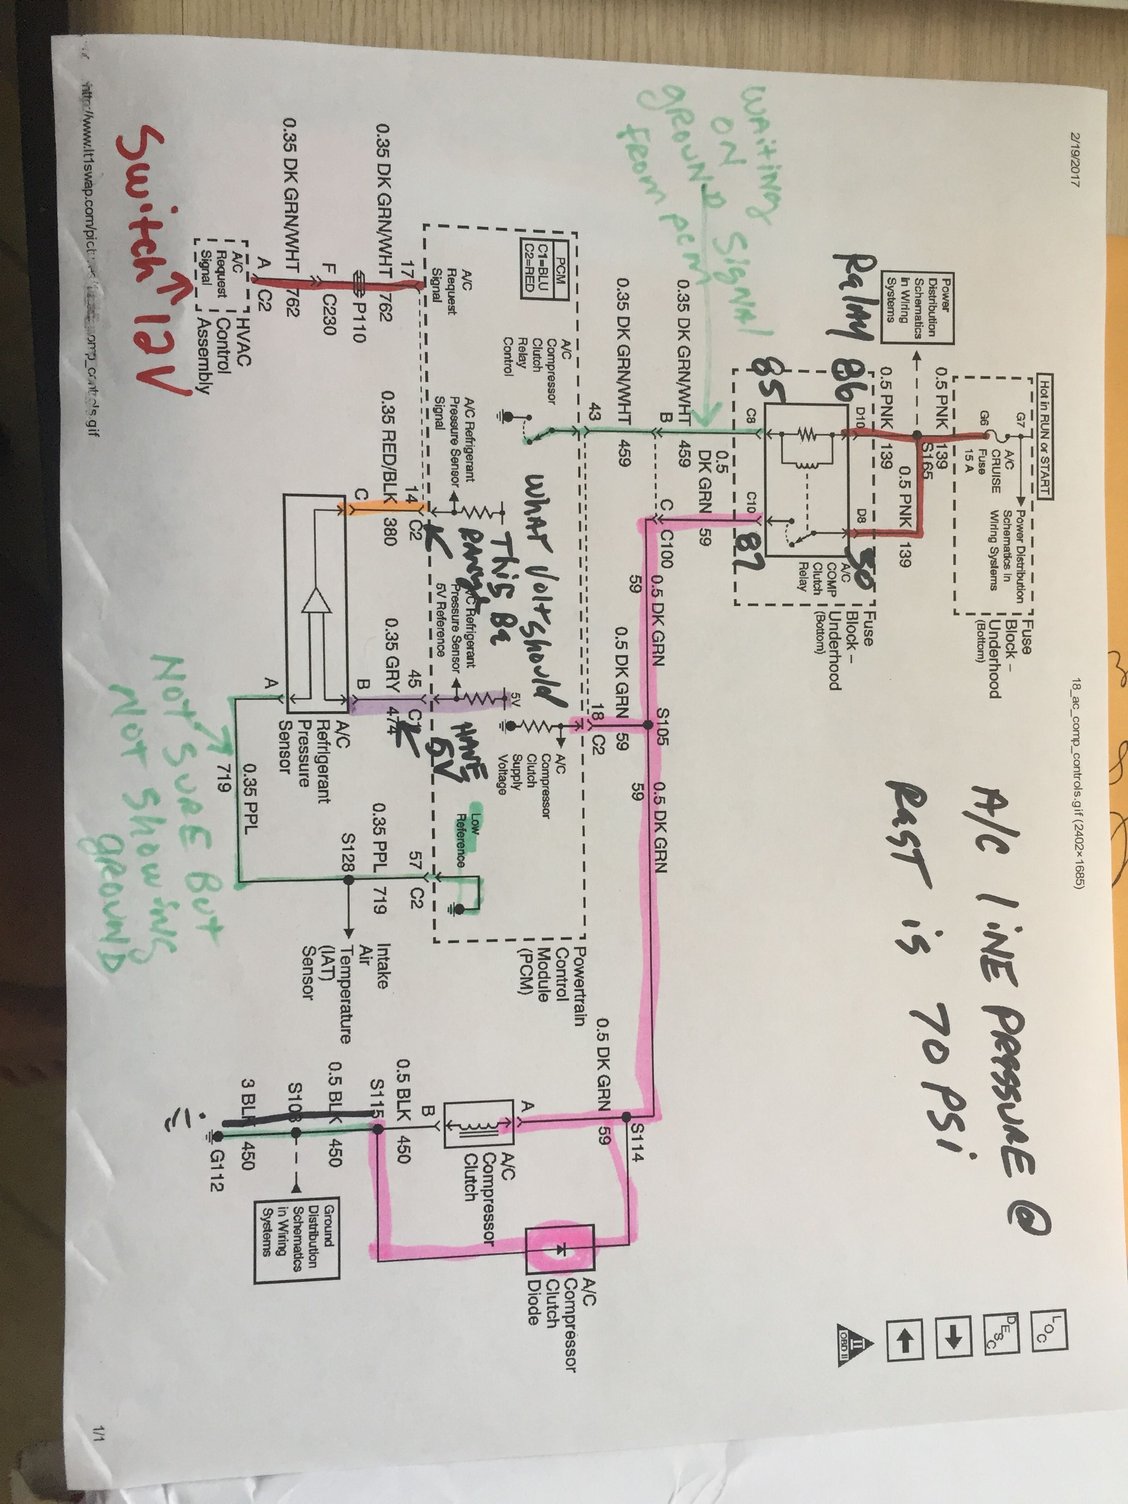 2/19/2017
18_ac_comp_controls.gif (2402×1685)
Hot in RUN or START
Power
Distribution
Schematics
in Wiring
Systems
G7
G6
A/C
CRUISE
Fuse
15 A
Power Distribution
Schematics in
Wiring Systems
Fuse
Block –
Underhood
(Bottom)
0.5 PNK
139
S165
0.5 PNK
139
0.5 PNK
139
D10
D8
Relay
86
30
85
87
A/C
COMP
Clutch
Relay
Fuse
Block –
Underhood
(Bottom)
C8
C10
A/C LINE PRESSURE @
RAST is 70 PSi
WAITING
ON
GROUND SIGNAL
FROM PCM
0.35 DK GRN/WHT
459
0.5
DK GRN
59
B
C
C100
0.35 DK GRN/WHT
459
59
0.5 DK GRN
0.5 DK GRN
59
S105
59
0.5 DK GRN
0.5 DK GRN
59
S114
43
18
C2
PCM
C1=BLU
C2=RED
A/C
Compressor
Clutch
Relay
Control
A/C
Compressor
Clutch
Supply
Voltage
Powertrain
Control
Module
(PCM)
WHAT Volt should
This Be
RANGE
5V
HAVE
5V
A/C
Request
Signal
A/C Refrigerant
Pressure Sensor
Signal
A/C Refrigerant
Pressure Sensor
5V Reference
Low
Reference
17
14
C2
45
57
C2
0.35 DK GRN/WHT
762
P110
F
C230
0.35 DK GRN/WHT
762
A
C2
A/C
Request
Signal
HVAC
Control
Assembly
Switch 12V
0.35 RED/BLK
380
C
0.35 GRY
474
B
A
A/C
Refrigerant
Pressure
Sensor
0.35 PPL
719
0.35 PPL
719
S128
Intake
Air
Temperature
(IAT)
Sensor
NOT SURE BUT
NOT SHOWING
GROUND
A
B
A/C
Compressor
Clutch
A/C
Compressor
Clutch
Diode
0.5 BLK
450
S115
0.5 BLK
450
3 BLK
450
G112
Ground
Distribution
Schematics
in Wiring
Systems
LOC
DESC
II
OBD II
1/1